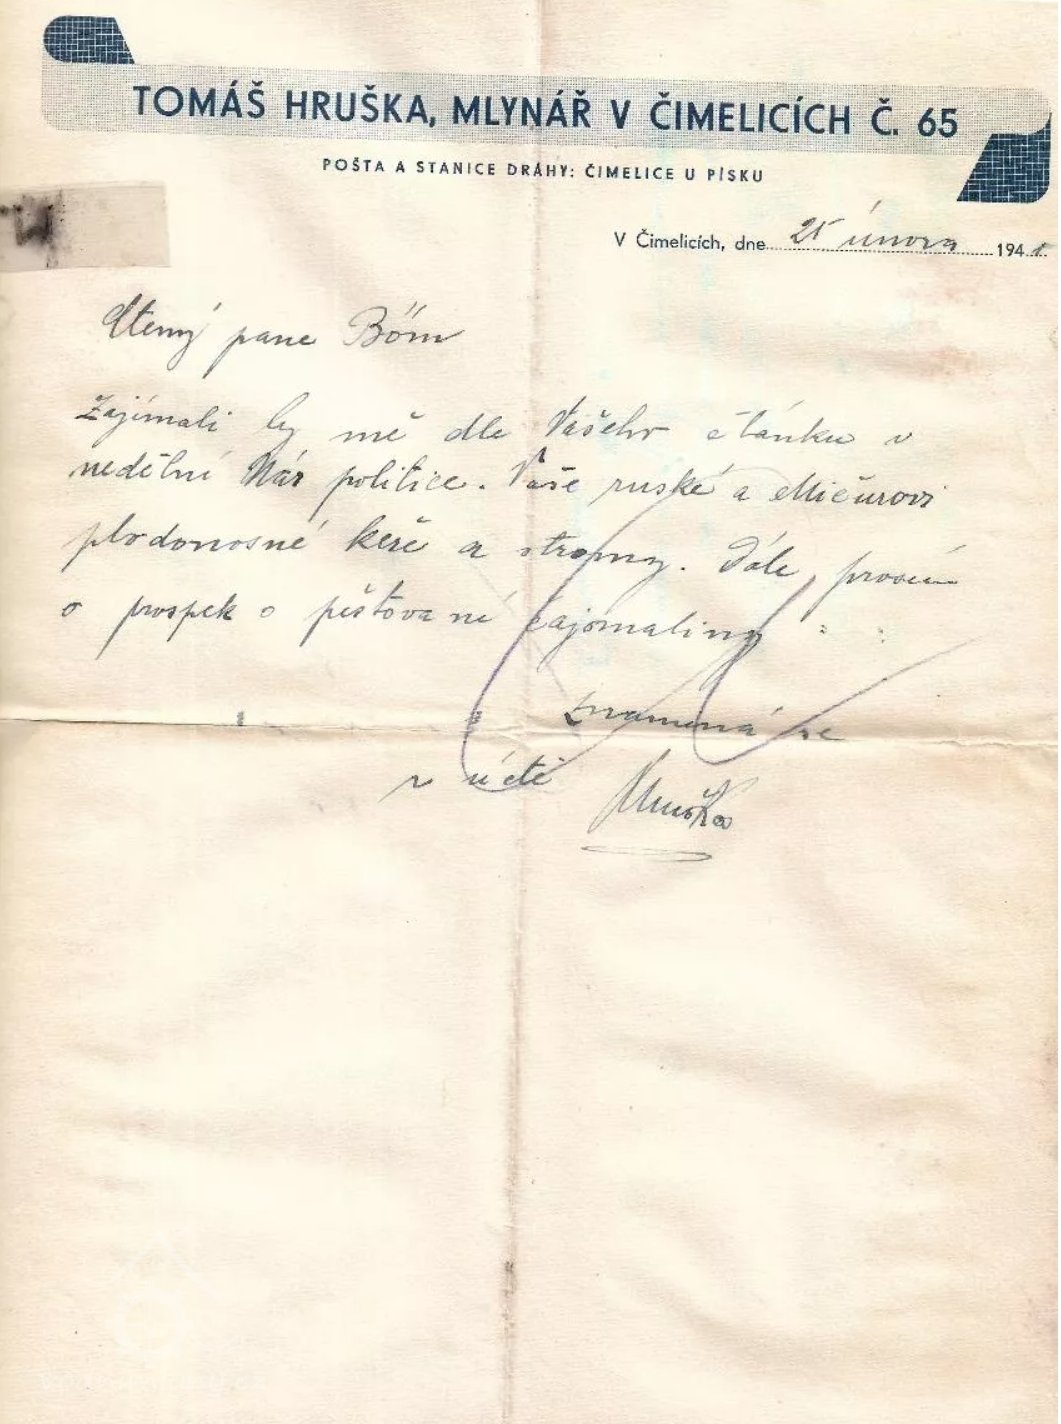 TOMÁŠ HRUŠKA, MLYNÁŘ V ČIMELICÍCH Č. 65
POŠTA A STANICE DRÁHY: ČIMELICE U PÍSKU
V Čimelicích, dne 25 února 194
Ctený pane Böm
Zajímali by mě dle Vašeho článku v
nedělní Nár politice. Vaše ruské a Mičurovi
plodonosné keře a stromy. Dále, prosím
o prospek o pěstované čajomaliny
znamená se
v úctě Hruška